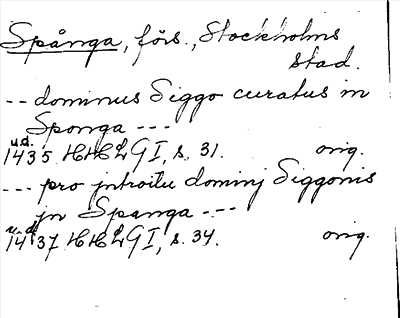 Spånga, förs., Stockholms
stad.
-- dominus Siggo curatus in
Sponga ---
u.d.
1435 HHLG I, s. 31. orig.
--- pro jntroitu dominj Siggonis
jn Spanga ---
u.d.
1437 HHLG I, s. 34. orig.